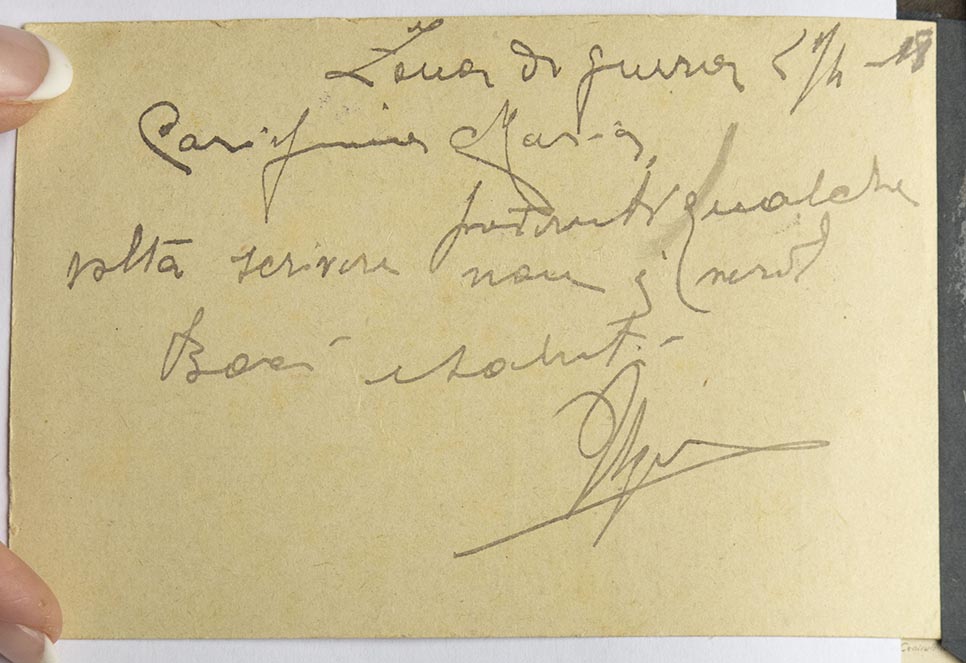 Zona di guerra 27/4 - 18
Carissima Maria,
potresti qualche
volta scrivere non ci
Baci e saluti